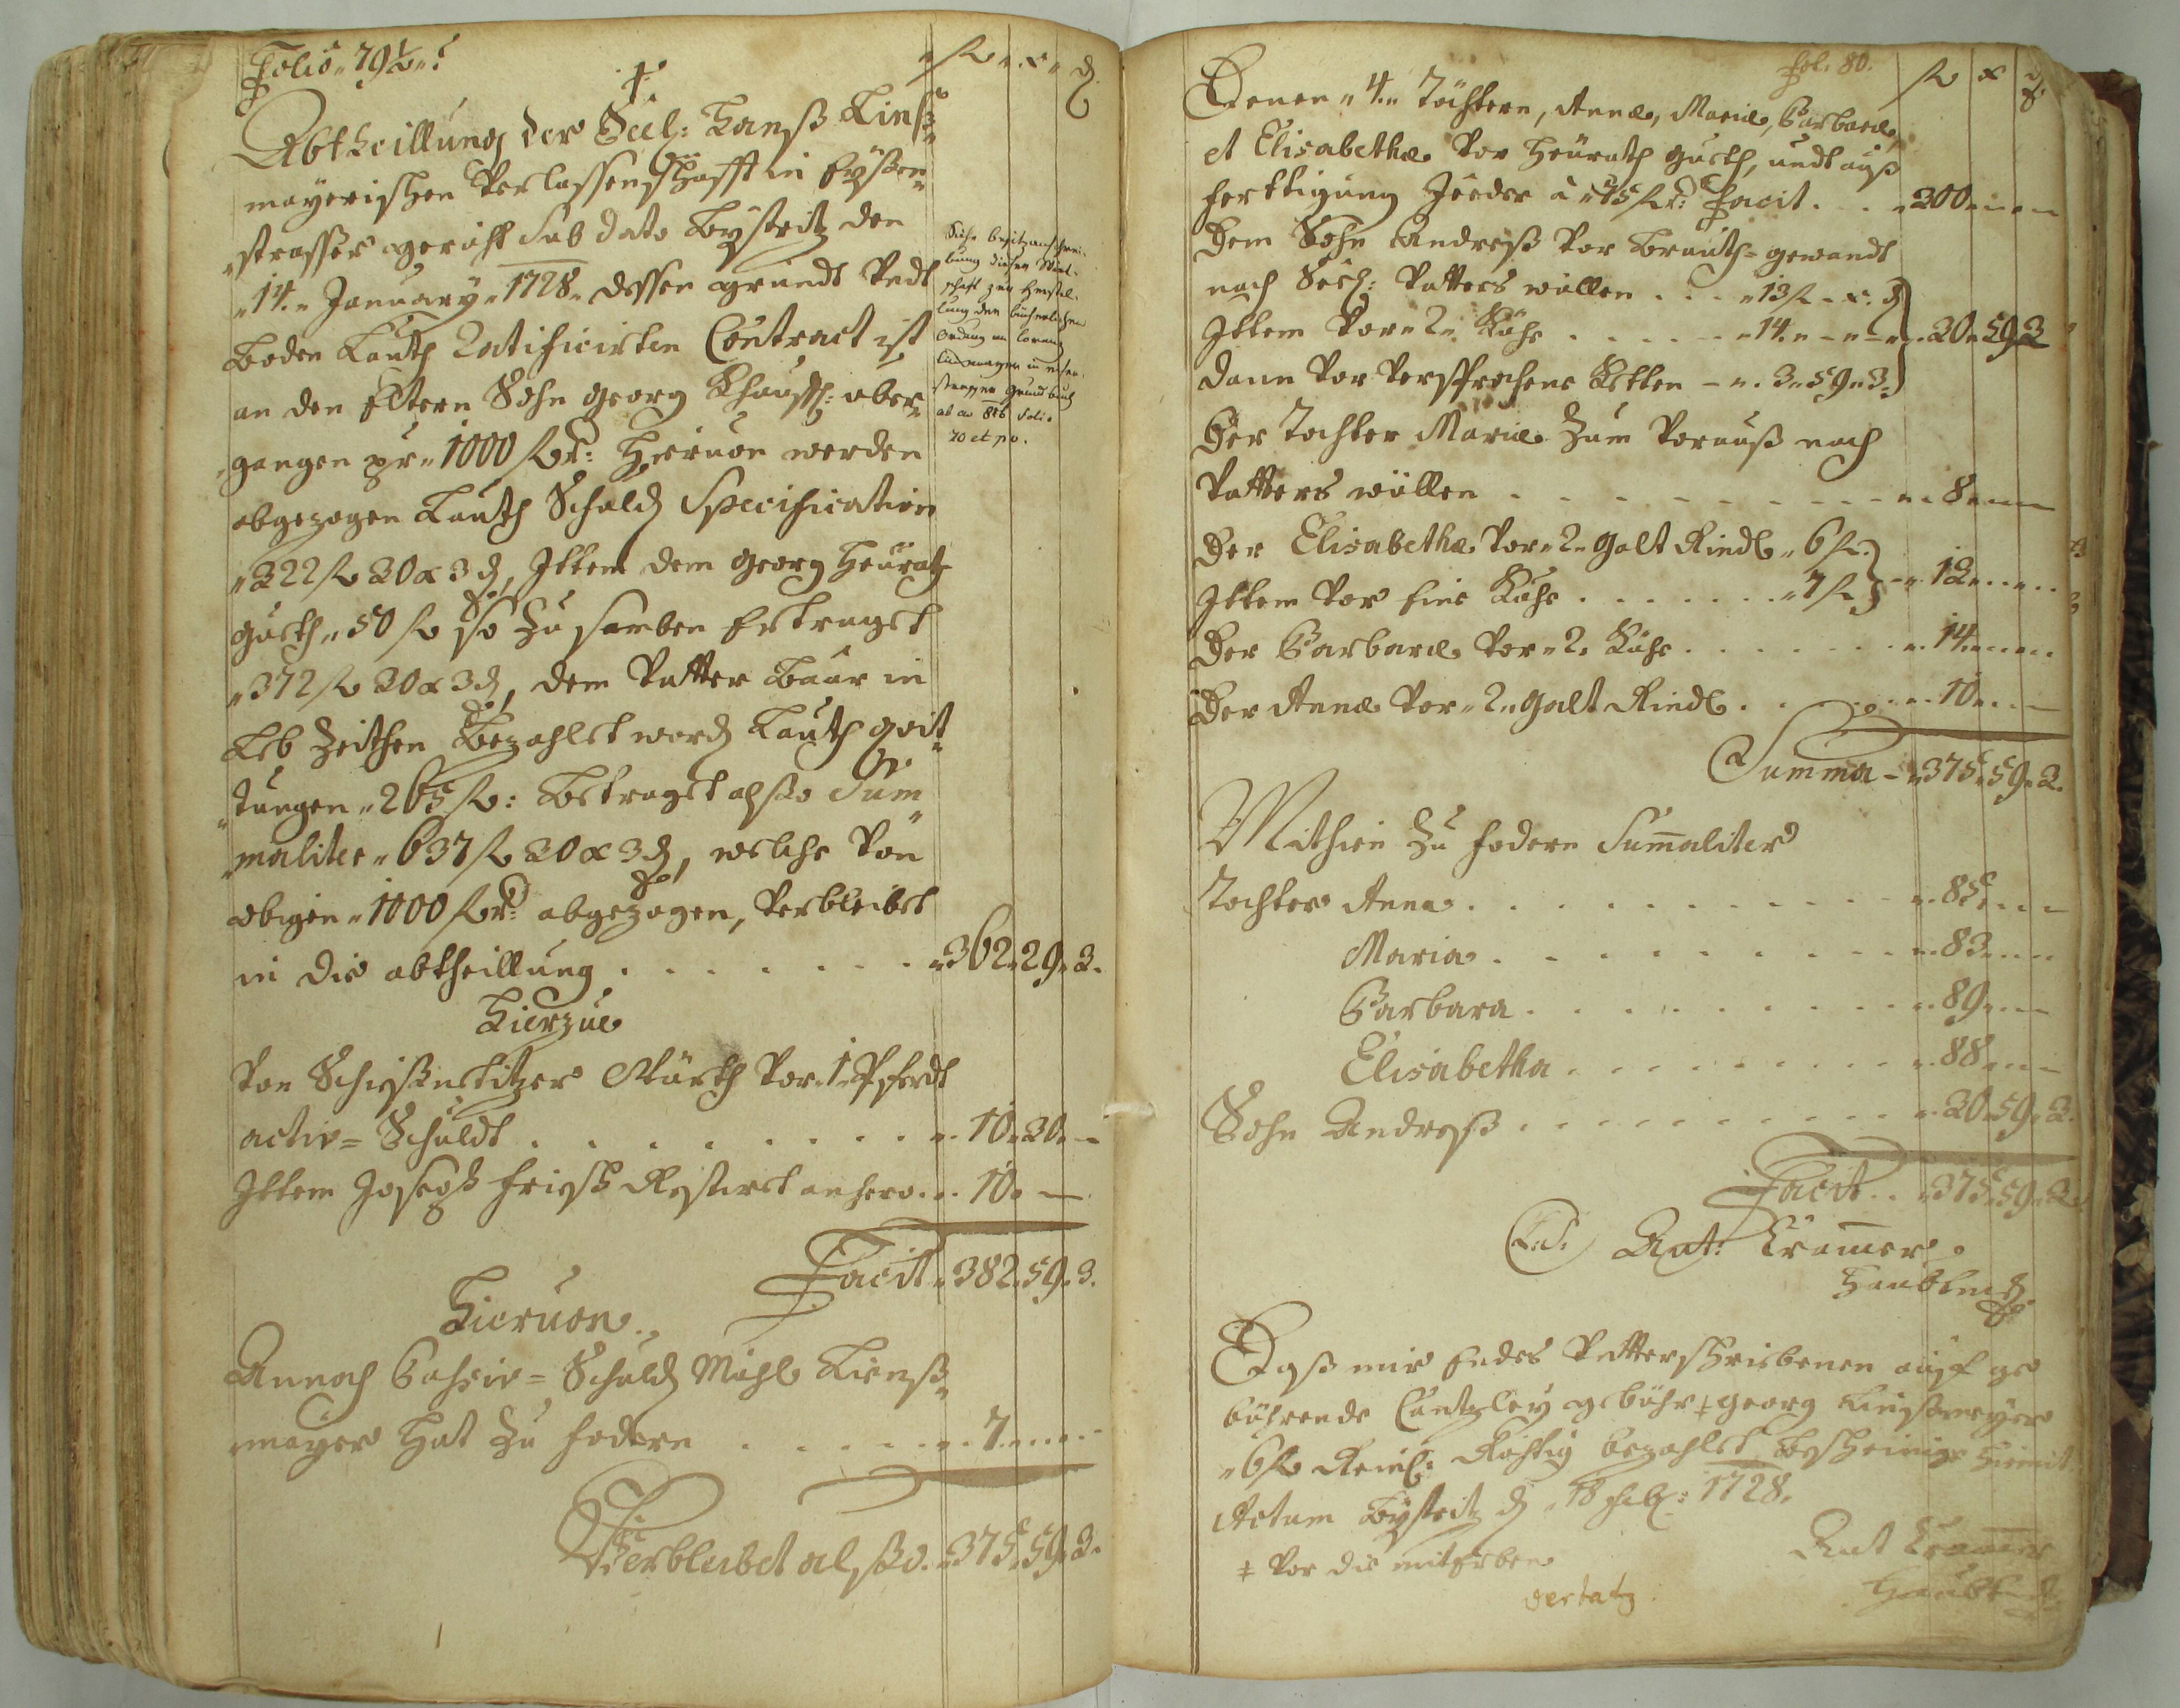 Folio „ 79 ½ „
„ fl „ x „ ₰
Abtheillung der Seel: Hanß Linß
mayerischen Verlassenschafft in Eyßen„
„strasser gericht sub dato Bystritz den
„14.„ January „1728„ dessen grundt undt
Boden Lauth Ratificirten Contract ist
an den Eltern Sohn Georg Khäuffl: über„
„gangen pr „1000 fl r: hieruon werden
abgezogen Lauth Schuld Specification
„322 fl 30 x 3 ₰, Ittem dem Georg Heürath
gueth „50 fl so zu samben Ertraget
„372 fl 30 x 3 ₰, dem Vatter Baar in
Leb Zeithen Bezahlet word Lauth Quit„
„tungen „265 fl: Betraget alßo Sum„
„maliter „637 fl 30 x 3 ₰, welche von
obigen „1000 fl r: abgezogen, verbleibet
in die abtheillung . . . . . . . „362„29„3.
Hierzue
Von Schießnetitzer Märth vor „1„ Pferdt
activ = Schuldt . . . . . . . . „10„30„–
Ittem Joseph Friesß Restiret anhero „10„ –
Facit „382„59„3.
Hieruon
Annoch Passiv = Schuld Michl Linß„
mayer hat zu fodern . . . . . „7„
Verbleibet alßo „375„59„3.
Siehe Besitzanschrei-
bung dieser Wirt-
schaft zur Herstel-
lung der bücherlichen
Ordnung an Lorenz
Linsmayer in Eisen-
strasser Grundbuch
ab ao 816 Folio
70 et po.
fol: 80.
fl x ₰
Denen „4„ Töchtern, Annæ, Mariæ, Barbaræ
et Elisabethæ vor Heürath gueth, undt auß
ferttigung Jeeder à „75 fl r: Facit . . . „300„
Dem Sohn Andreß vor Brauth=gewandt
nach Seel: Vatters willen . . . „13 fl „ x „ ₰
Ittem vor „2„ Kühe . . . . . „14„ – „ – „ 30„59„3
Dann vor versprochene Ketten – „ 3„59„3.
Der Tochter Mariæ zum vorauß nach
Vatters willen . . . . . . . . . „8„
Der Elisabethæ vor „2„ galt Rindl „6 fl
Ittem vor Eine Kühe . . . . . . „7 fl „13„
Der Barbaræ vor „2„ Kühe . . . . . . „14„
Der Annæ vor „2„ galt Rindl . . . . „10„
Summa – „375„59„3.
Mithin zu fodern Sum̄aliter
Tochter Anna . . . . . . . . . . „85„
Maria . . . . . . . . . „83„
Barbara . . . . . . . . . „89„
Elisabetha . . . . . . . . „88„
Sohn Andreß . . . . . . . . . . „30„59„3.
Facit . . „375„59„3.
(L.S.) Ant: Cram̄er
Haubtm
Daß mir Endes Untterschribenen auf ge
bührende Cantzley gebühr ‡ Georg Linßmayer
„6 fl Reinl: Richtig bezahlet Bescheinige hiemit
Actum Bystritz ₰ „18 Feb: 1728.
Ant Cram̄er
Haubtm
‡ vor die mit Erben
vertatz